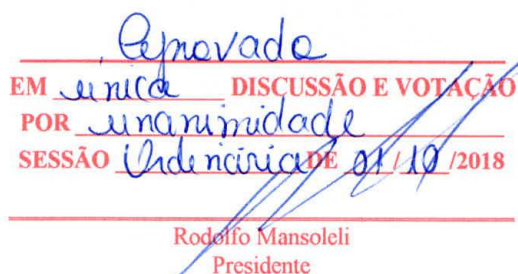 Aprovado
EM única DISCUSSÃO E VOTAÇÃO
POR unanimidade
SESSÃO Ordenária DE 01/10/2018
Rodolfo Mansoleli
Presidente